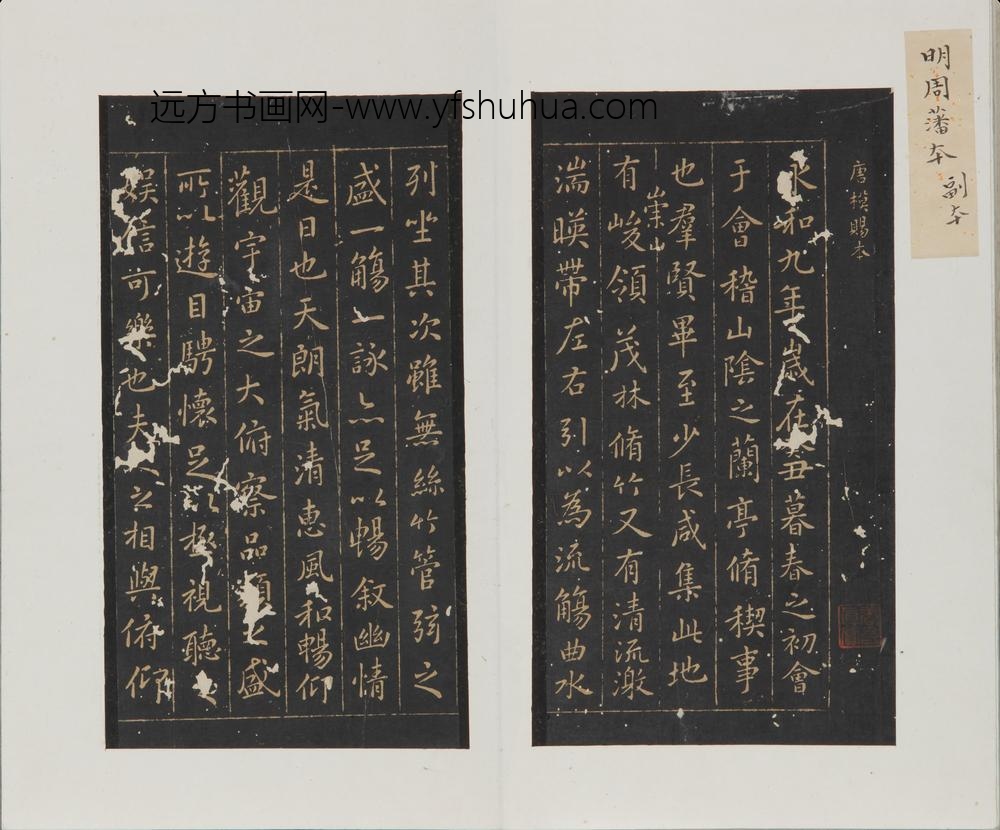 远方书画网-www.yfshuhua.com
明周藩本 副本
唐模賜本
永和九年歲在癸丑暮春之初會
于會稽山陰之蘭亭脩稧事
也羣賢畢至少長咸集此地
有崇山峻領茂林脩竹又有清流激
湍暎帶左右引以為流觴曲水
列坐其次雖無絲竹管弦之
盛一觴一詠亦足以暢敘幽情
是日也天朗氣清惠風和暢仰
觀宇宙之大俯察品類之盛
所以遊目騁懷足以極視聽之
娛信可樂也夫人之相與俯仰